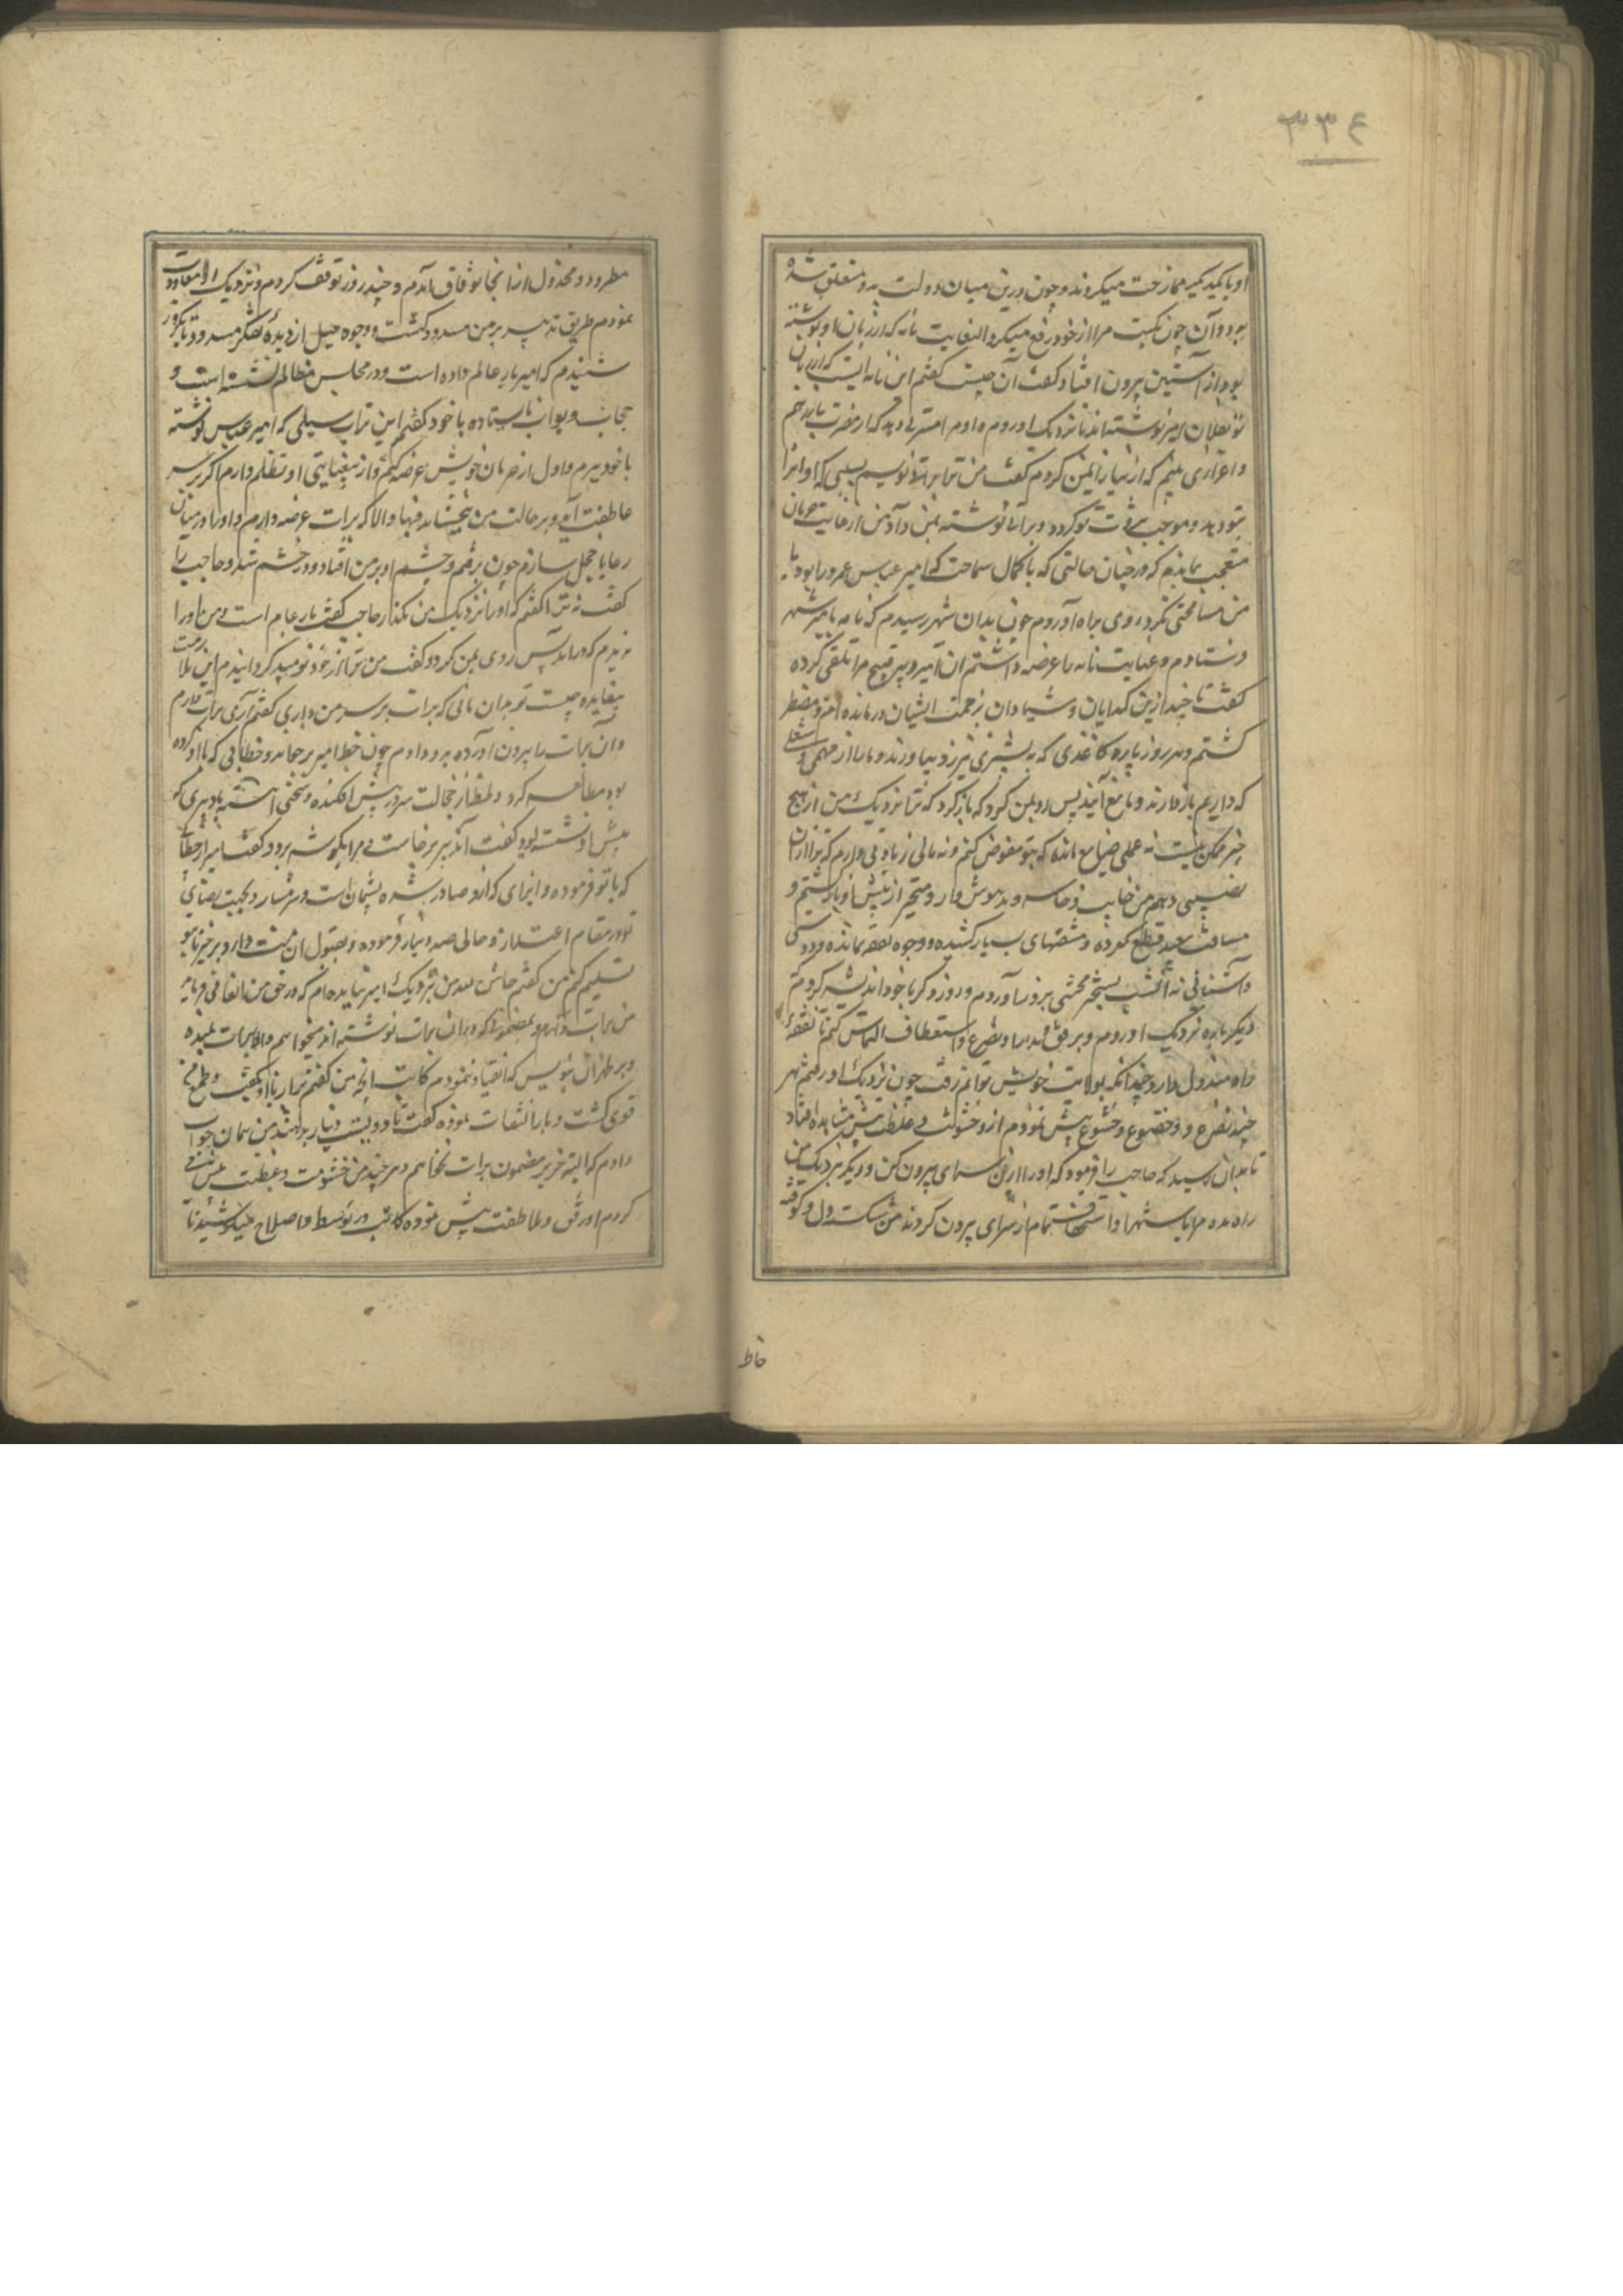 ۳۳۶
او با یکدیگر ممازحت میکردند و چون درین میان دولت بدو متعلق شده
بود و آن چون نکبت مرا از خود رفع میکرد
بود از آستین بیرون افتاد گفت آن چیست گفتم این نامه ایست که از زبان
تو بفلان امیر نوشته اند تا نزدیک او روم و او مرا
و اعزازی بینم که از نیاز ایمن کردم گفت من ترا براتی نویسم بسیلی که او آنرا
بتو دهد و موجب ثروت تو گردد و براتی نوشته بمن داد من از غایت حرمان
متعجب بماندم که در چنان حالتی که با کمال سماحت که امیر عباس عمرو را بود با
من مسامحتی نکرد روی براه آوردم چون بدان شهر رسیدم که نامه بامیر شهر
فرستادم و عنایت نامه را عرضه داشتم آن امیر مرا تلقی کرده
گفت تا چند ازین گدایان و شیادان بزحمت ایشان درمانده و مضطر
گشتم و هر روز پاره کاغذی که به پشیزی نیرزد بیاورند و ما را از مهمی و شغلی
که داریم باز دارند و مانع آیند پس رو بمن کرد که باز گرد که ترا نزدیک من از هیچ
خیر ممکن نیست نه عملی ضایع مانده که بتو مفوض کنم و نه مالی زیادتی دارم که ترا از آن
نصیبی دهم من خایب و خاسر و مدهوش وار و متحیر از پیش او بازگشتم و
مسافت بعید قطع کرده و مشقتهای بسیار کشیده و وجوه نفقه نمانده و دوستی
و آشنائی نه آن شب بسختی بروز آوردم و روز دیگر با خود اندیشه کردم که
دیگر باره نزدیک او روم و برفق و مدارا و تضرع و استعطاف التماس کنم تا نفقهٔ
راه مبذول دارد چندانکه بولایت خویش توانم رفت چون نزدیک او رفتم هر
چند تضرع و خضوع و خشوع بیش نمودم ازو خشونت و غلظت بیش مشاهده افتاد
تا بدان رسید که حاجب را فرمود که او را ازین سرای بیرون کن و دیگر نزدیک من
راه مده مرا باستهزا و استخفاف تمام از سرای بیرون کردند من شکسته دل و کوفته
خاطر
مطرود و مخذول از آنجا بوثاق آمدم و چند روز توقف کردم و نزدیک او معاودت
ننمودم طریق تدبیر بر من مسدود گشت و وجوه حیل از دیده تفکر مسدود تا یکروز
شنیدم که امیر بار عام داده است و در مجلس مظالم نشسته است و
حجاب و بواب باز ستاده با خود گفتم این برات سیلی که امیر عباس نوشته
با خود ببرم و اول از حرمان خویش عرضه کنم و از بیعنایتی او تظلم دارم اگر بر سر
عاطفت آید و بر حالت من بخشاید فبها و الا که برات عرضه دارم و او را در میان
رعایا خجل سازم چون برفتم و چشم او بر من افتاد در خشم شد و حاجب را
گفت نه ترا گفتم که او را نزدیک من مگذار حاجب گفت بار عام است و من او را
ندیدم که درآمد پس روی بمن کرد و گفت من ترا از خود نومید گردانیدم این ملازمت
بیفایده چیست تو بدان مانی که برات بر سر من داری گفتم آری برات دارم
و آن برات را بیرون آورده بدو دادم چون خط امیر بر خواند و خطابی که با او کرده
بود مطالعه کرد و لحظهٔ از خجالت سر در پیش افکنده و سخنی آهسته با دبیری که
پیش او نشسته بود گفت آن دبیر برخاست و مرا بگوشه برد و گفت امیر از خطابی
که با تو فرموده و ایذای که ازو صادر شده پشیمان است و شرمسار و بجهت رضای
تو در مقام اعتذار و حالی صد دینار فرموده و بقبول آن منت دارد برخیز تا بتو
تسلیم کنم من گفتم حاشا من نزدیک امیر نیامده ام که در حق من انعامی فرماید
من برات دارم و مضمون آنکه در آن برات نوشته اند میخواهم والا برات بمن ده
و بر ظهر آن بنویس که انقیاد ننمودم کاتب آنچه من گفتم با او بگفت و طمع من
قوی گشت و بار التفات ننموده گفت تا دویست دینار بدهند من همان جواب
دادم که البته جز بر مضمون برات نخواهم و هر چند من خشونت و غلظت بیش می
کردم او رفق و ملاطفت بیش نموده کاتب در توسط و اصلاح میکوشید تا